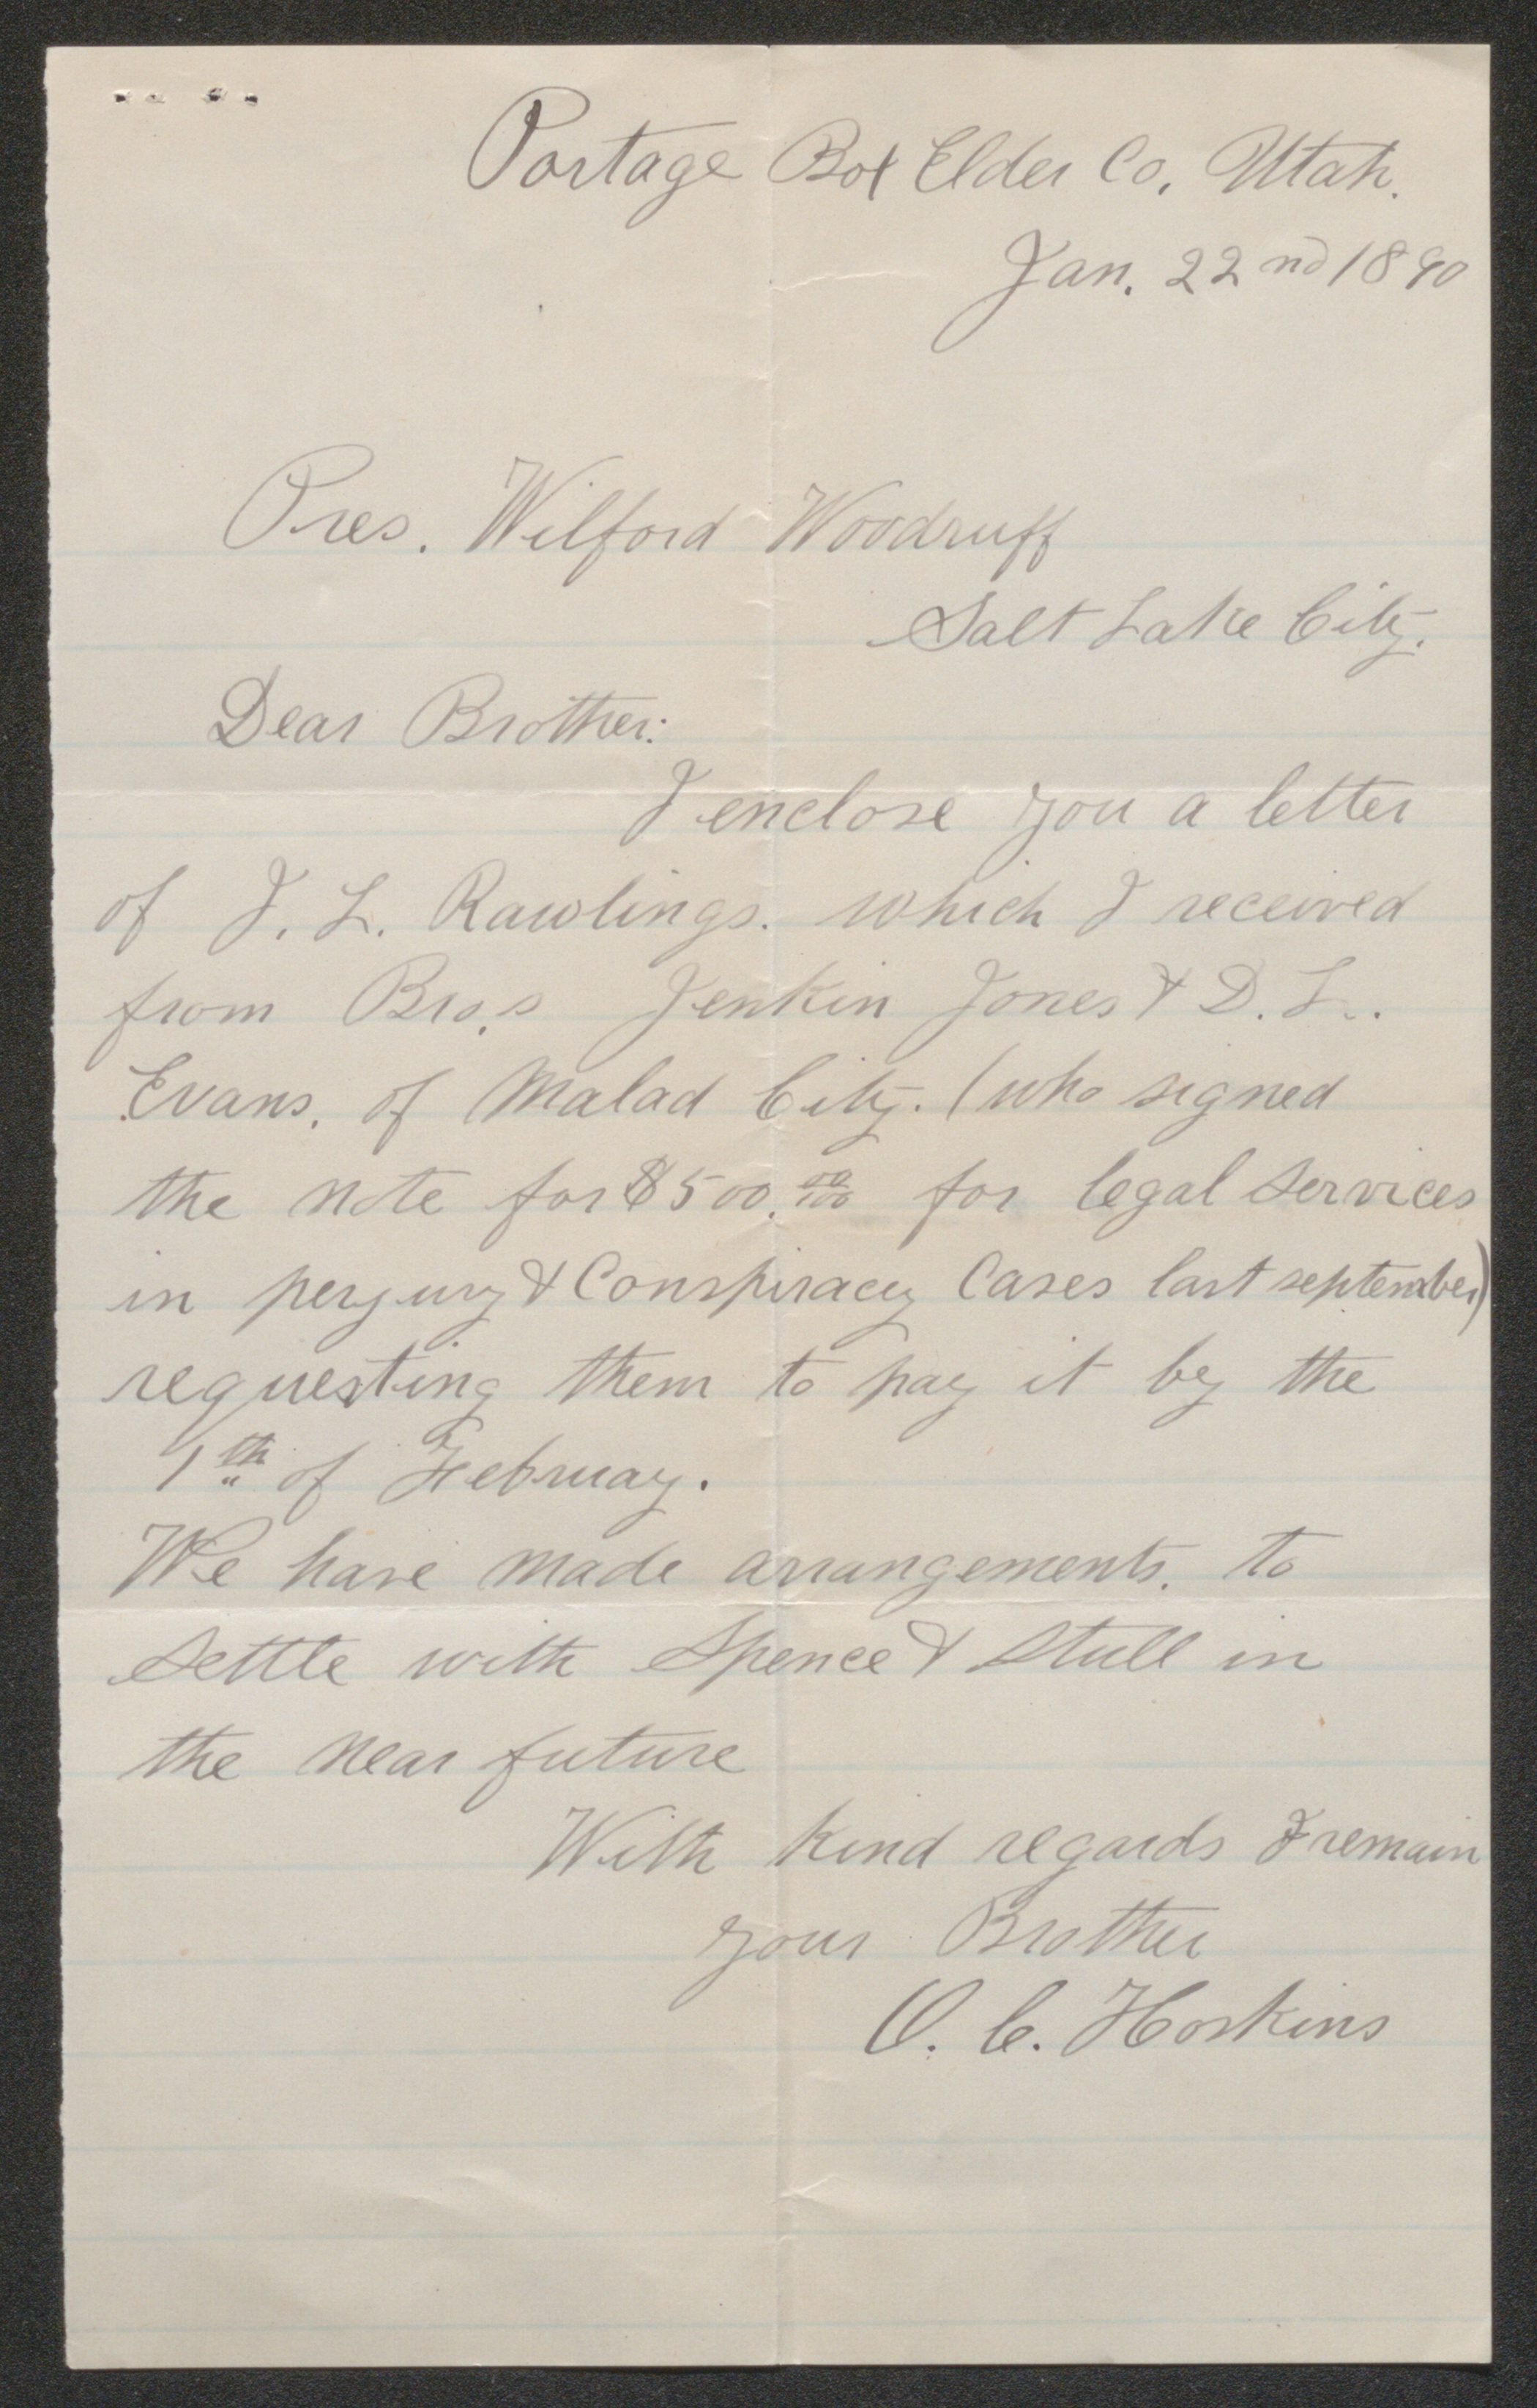 Portage Box Elder Co, Utah.
Jan. 22nd 1890
Pres. Wilford Woodruff
Salt Lake City.
Dear Brother:
I enclose you a letter
of J. L. Rawlings. which I received
from Bro.s Jenkin Jones & D. L..
Evans, of Malad City. (who signed
the note for $500.00/100 for legal services
in perjury & Conspiracy Cases last september)
requesting them to pay it by the
1th of February.
We have made arrangements. to
settle with Spence & Stull in
the near future
With kind regards I remain
your Brother
O. C. Hoskins